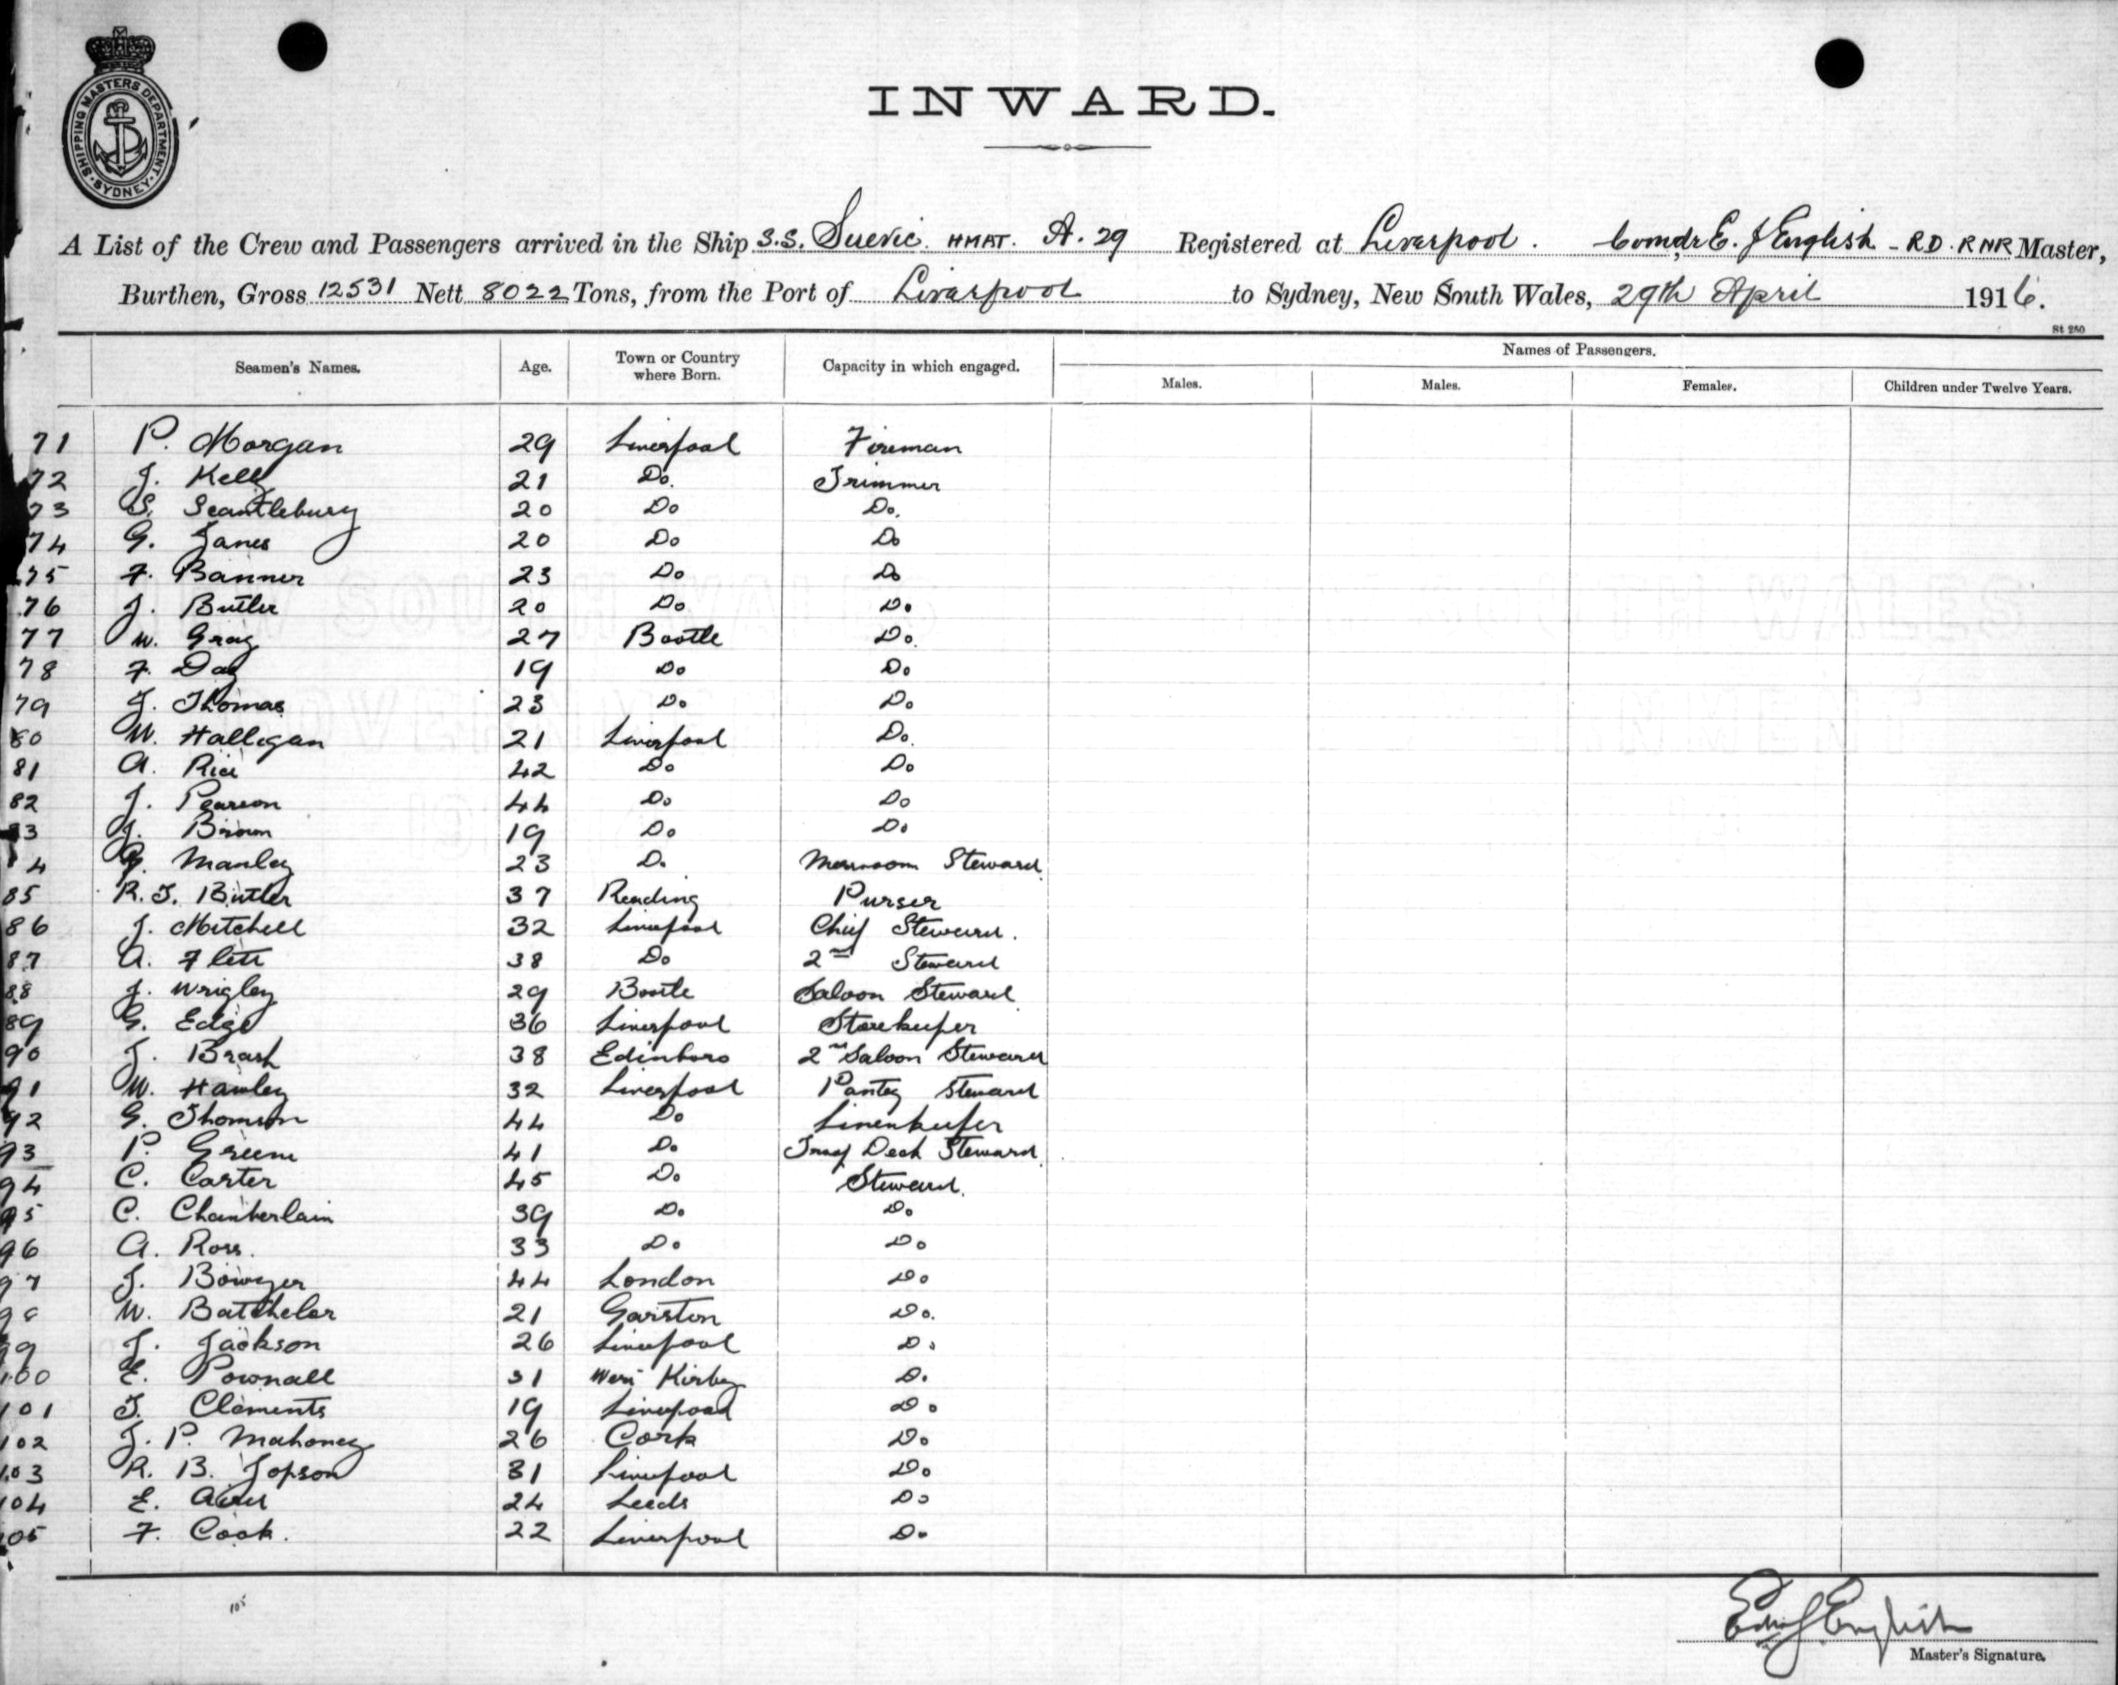 SHIPPING MASTERS DEPARTMENT. SYDNEY
INWARD.
A List of the Crew and Passengers arrived in the Ship S.S. Suevic. HMAT. A. 29 Registered at Liverpool. Comdr E. J English - RD. RNR Master,
Burthen, Gross 12531 Nett 8022 Tons, from the Port of Liverpool to Sydney, New South Wales, 29th April 1916.
St 250
Seamen's Names. Age. Town or Country where Born. Capacity in which engaged. Names of Passengers.
Males. Males. Females. Children under Twelve Years.
71 P. Morgan 29 Liverpool Fireman
72 J. Kelly 21 Do. Trimmer
73 S. Scantlebury 20 Do Do.
74 G. Janes 20 Do Do
75 F. Banner 23 Do Do
76 J. Butler 20 Do Do
77 W. Gray 27 Bootle Do.
78 F. Day 19 Do Do
79 J. Thomas 23 Do Do.
80 W. Halligan 21 Liverpool Do.
81 A. Rice 42 Do Do
82 J. Pearson 44 Do Do
83 J. Brown 19 Do Do
4 G. Manley 23 Do Messroom Steward
85 R. J. Butler 37 Reading Purser
86 J. Mitchell 32 Liverpool Chief Steward.
87 A. Flett 38 Do 2nd Steward
88 J. Wrigley 29 Bootle Saloon Steward
89 G. Edge 36 Liverpool Storekeeper
90 J. Brash 38 Edinboro 2nd Saloon Steward
91 W. Hawley 32 Liverpool Pantry Steward
92 G. Thomson 44 Do Linenkeeper
93 P. Green 41 Do Troop Deck Steward
94 C. Carter 45 Do Steward.
95 C. Chamberlain 39 Do Do
96 A. Ross. 33 Do Do
97 J. Bowyer 44 London Do
98 W. Batcheler 21 Garston Do.
99 J. Jackson 26 Liverpool Do
100 E. Pownall 31 West Kirby Do
101 T. Clements 19 Liverpool Do
102 J. P. Mahoney 26 Cork Do
103 R. B. Jopson 31 Liverpool Do
104 E. 24 Leeds Do
105 F. Cook. 22 Liverpool Do
105
Edw J English
Master's Signature.